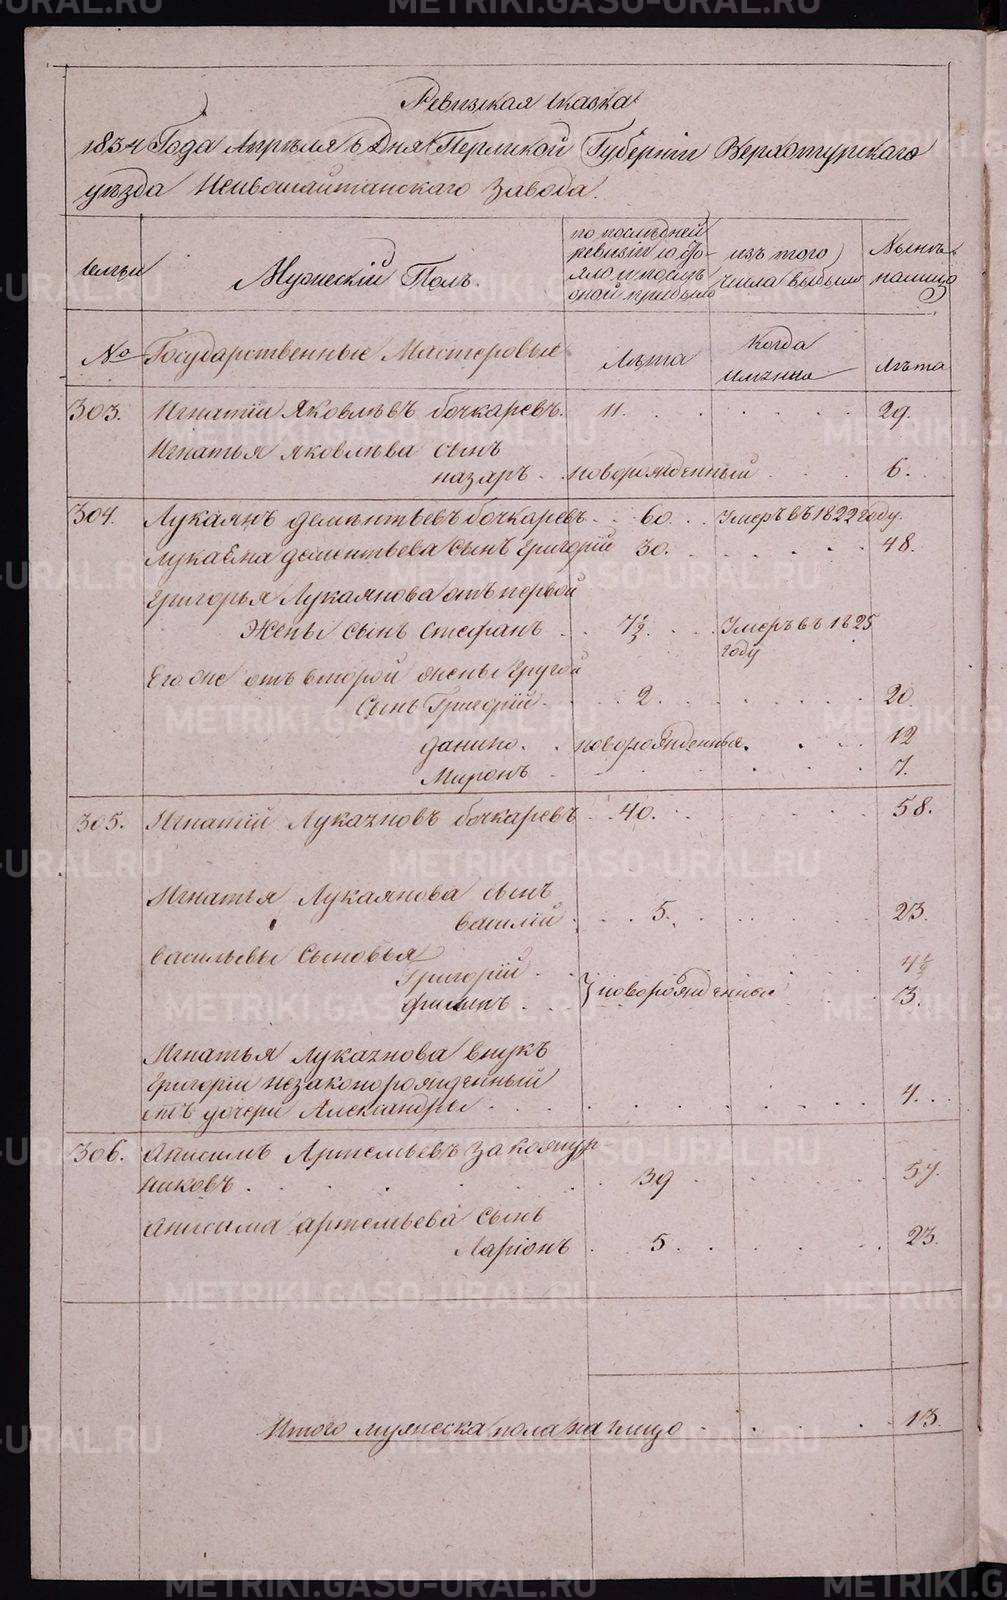 Ревизская сказка
1834 Года Апреля 6 Дня Пермской Губернии Верхотурскаго
уѣзда Нейвошайтанскаго Завода.
семьи
Мужескій Полъ.
по послѣдней
ревизіи состо-
яло и послѣ
оной прибыло
изъ того
числа выбыло
Нынѣ
налицо
№
Государственные Мастеровые
Лѣта
Когда
имянно
Лѣта
303. Игнатій Яковлѣвъ бочкаревъ. 11. 29.
Игнатья яковлѣва сынъ
назаръ. новорожденный 6.
304. Лукаянъ дементьевъ бочкаревъ. 60. Умеръ въ 1822 году.
Лукаяна дементьева сынъ григорій 30. 48.
Григорья Лукаянова отъ первой
Жены сынъ стефанъ 7½. Умеръ въ 1825
году
Его же отъ второй жены другой
Сынъ Григорій 2. 20.
данило. новорожденные. 12
Миронъ 7.
305. Игнатій Лукаяновъ бочкаревъ 40. 58.
Игнатья Лукаянова сынъ
василій 5. 23.
васильевы Сыновья
Григорій 4½
филипъ новорожденные 3.
Игнатья Лукаянова внукъ
григоріи незаконорожденный
отъ дочери Александры 4.
306. Анисимъ Артемьевъ закожур
никовъ 39 57.
Анисима артемьева сынъ
Ларіонъ 5. 23.
Итого мужеска пола на лицо 13.
METRIKI.GASO-URAL.RU